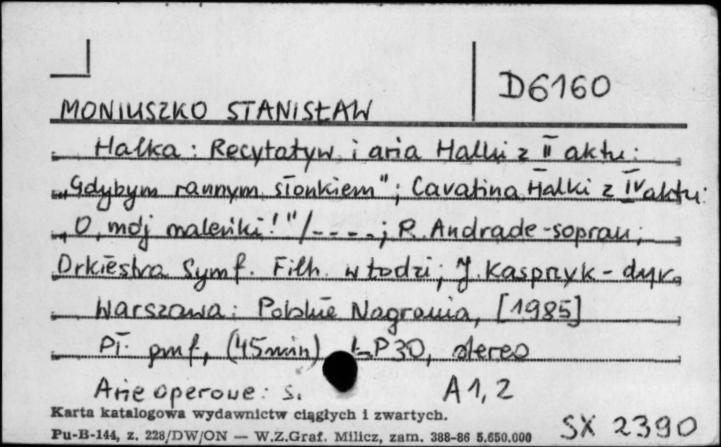 D6160
MONIUSZKO STANISŁAW
Halka : Recytatyw i aria Halki z II aktu:
„Gdybym rannym słonkiem"; Cavatina Halki z IV aktu:
„O, mój maleńki!"/----; R. Andrade-sopran;
Orkiestra Symf. Filh. w Łodzi; J. Kasprzyk - dyr.
Warszawa: Polskie Nagrania, [1985]
Pł. gmf, (45min) LP30, stereo
Arie operowe: s. A1,2
Karta katalogowa wydawnictw ciągłych i zwartych.
Pu-B-144, z. 228/DW/ON — W.Z.Graf. Milicz, zam. 388-86 5.650.000
SX 2390